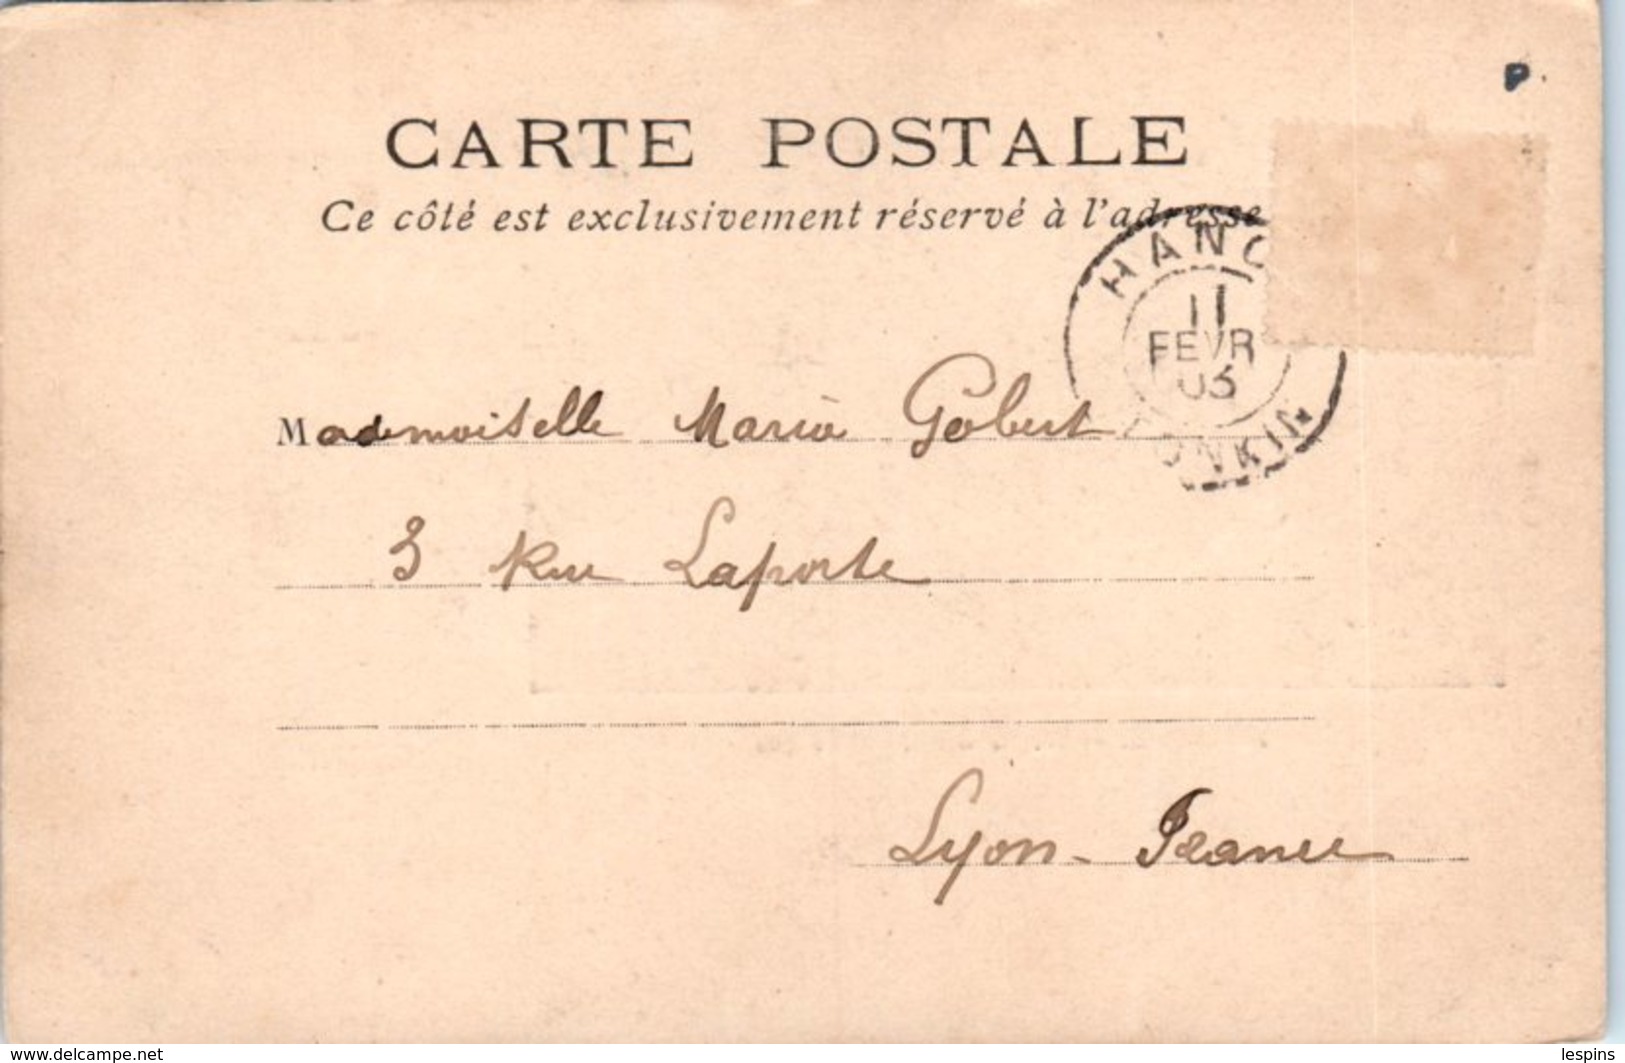 CARTE POSTALE
Ce côté est exclusivement réservé à l'adresse
HANO
11
FEVR
03
TONKIN
Mademoiselle Maria Gobert
3 Rue Laporte
Lyon - France
www.delcampe.net
lespins